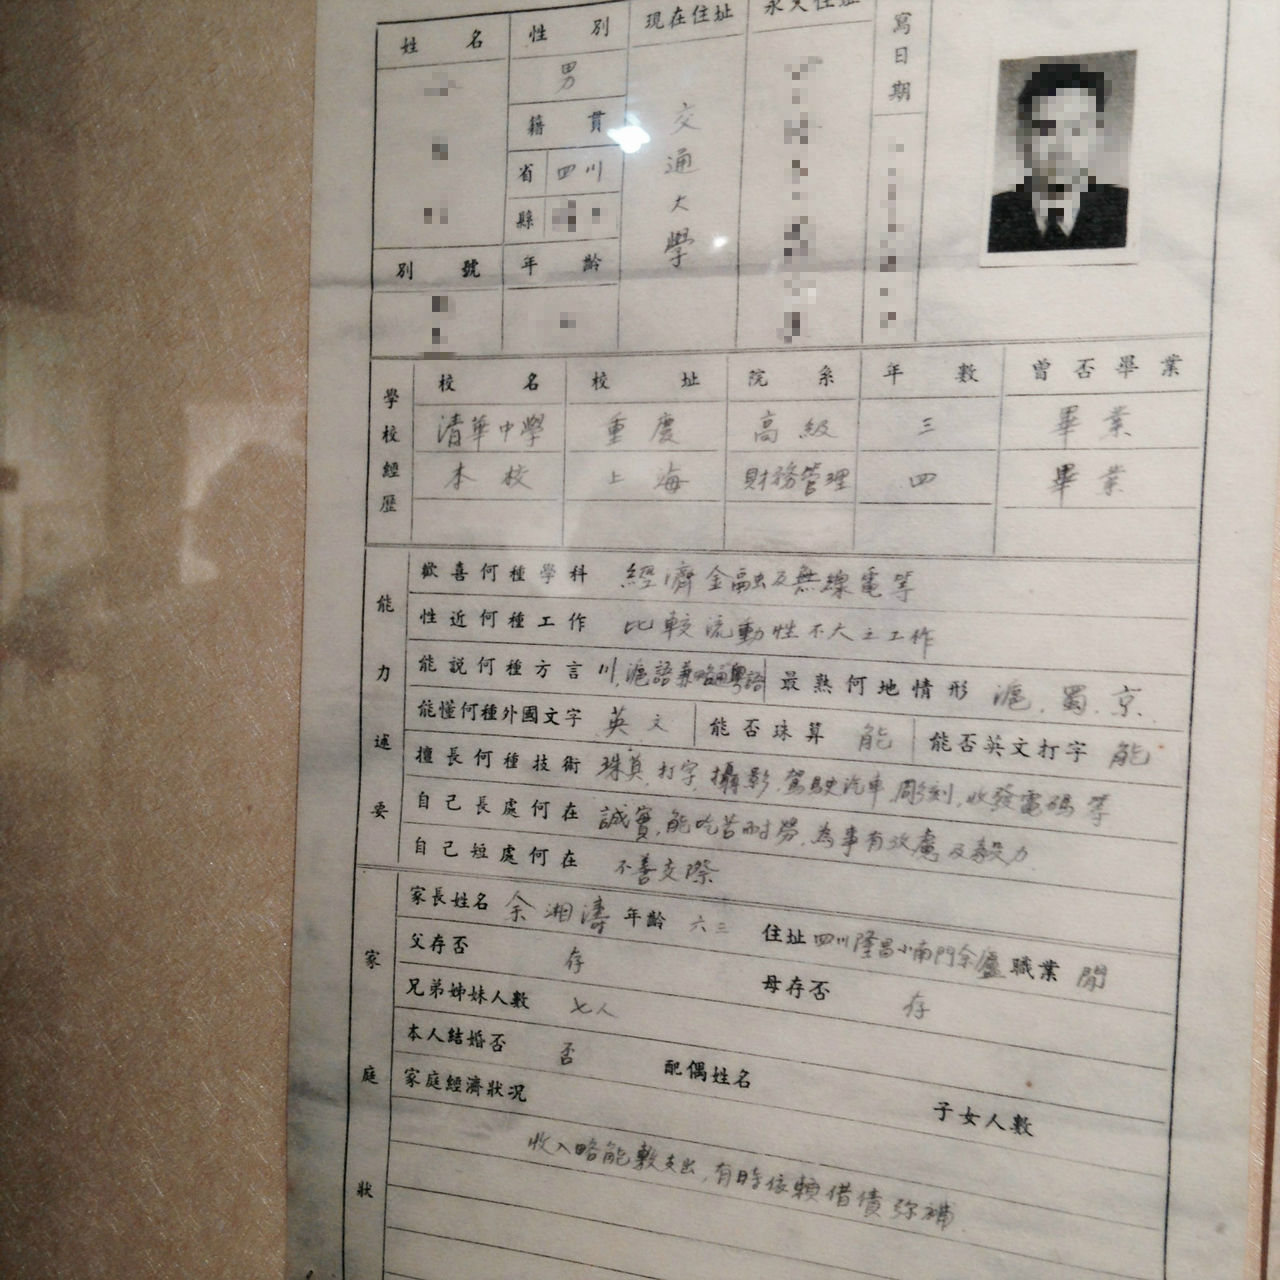 姓名 性別 現在住址 永久住址 寫日期
男
籍貫 交通大學
省 四川
縣
別號 年齡
學校經歷 校名 校址 院系 年數 曾否畢業
清華中學 重慶 高級 三 畢業
本校 上海 財務管理 四 畢業
能力述要
歡喜何種學科 經濟金融及無線電等
性近何種工作 比較流動性不大之工作
能說何種方言 川,滬語兼略通粵語 最熟何地情形 滬.蜀.京
能懂何種外國文字 英文 能否珠算 能 能否英文打字 能
擅長何種技術 珠算,打字,攝影,駕駛汽車,彫刻,收發電碼等
自己長處何在 誠實,能吃苦耐勞,為事有攷慮及毅力
自己短處何在 不善交際
家庭狀
家長姓名 余湘濤 年齡 六三 住址 四川隆昌小南門余廬 職業 閒
父存否 存 母存否 存
兄弟姊妹人數 七人
本人結婚否 否 配偶姓名 子女人數
家庭經濟狀况
收入略能敷支出,有時依賴借債弥補